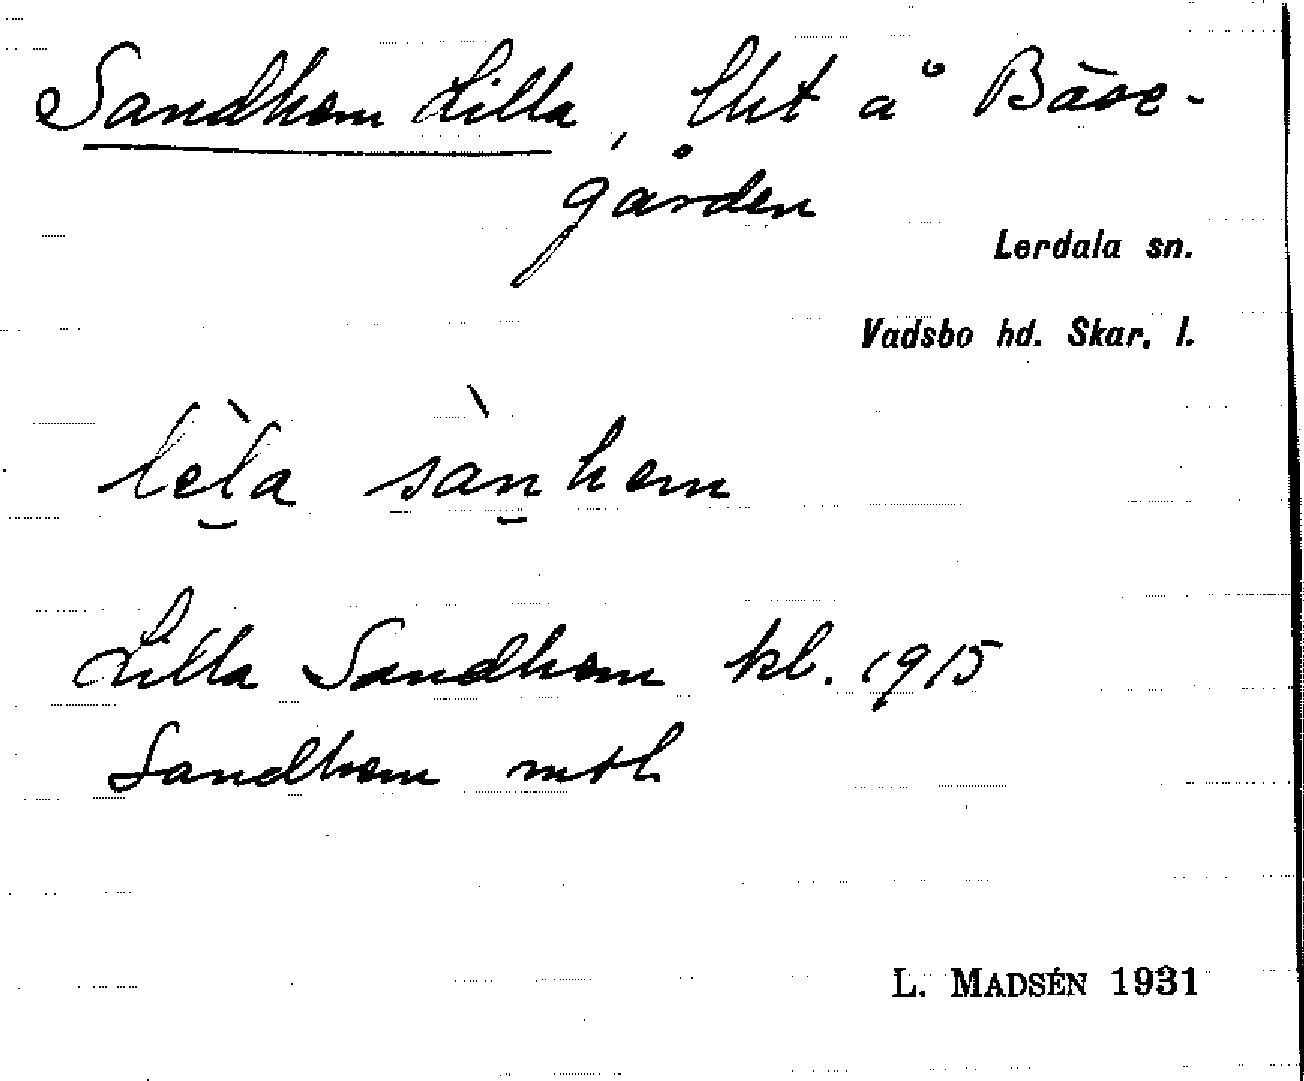 Sandhem Lilla, lht å Bäve-
gården
Lerdala sn.
Vadsbo hd. Skar. l.
lèla sànhem
Lilla Sandhem kl. 1915
Sandhem mtl
L. MADSÉN 1931